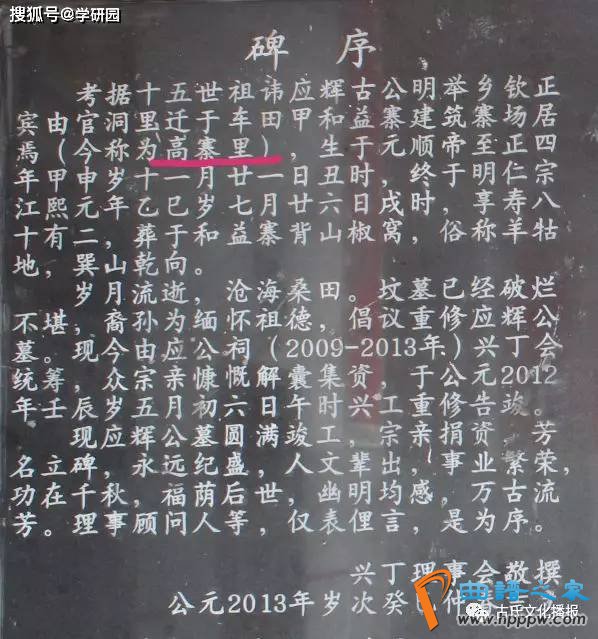 搜狐号@学研园
碑序
考据十五世祖讳应辉古公明举乡钦正
宾由官洞里迁于车田甲和益寨建筑寨场居
焉(今称为高寨里),生于元顺帝至正四
年甲申岁十一月廿一日丑时,终于明仁宗
江熙元年乙巳岁七月廿六日戌时,享寿八
十有二,葬于和益寨背山椒窝,俗称羊牯
地,巽山乾向。
岁月流逝,沧海桑田。坟墓已经破烂
不堪,裔孙为缅怀祖德,倡议重修应辉公
墓。现今由应公祠(2009-2013年)兴丁会
统筹,众宗亲慷慨解囊集资,于公元2012
年壬辰岁五月初六日午时兴工重修告竣。
现应辉公墓圆满竣工,宗亲捐资,芳
名立碑,永远纪盛,人文辈出,事业繁荣,
功在千秋,福荫后世,幽明均感,万古流
芳。理事顾问人等,仅表俚言,是为序。
兴丁理事会敬撰
公元2013年岁次癸巳仲
古氏文化播报
曲谱之家
www.hpppw.com